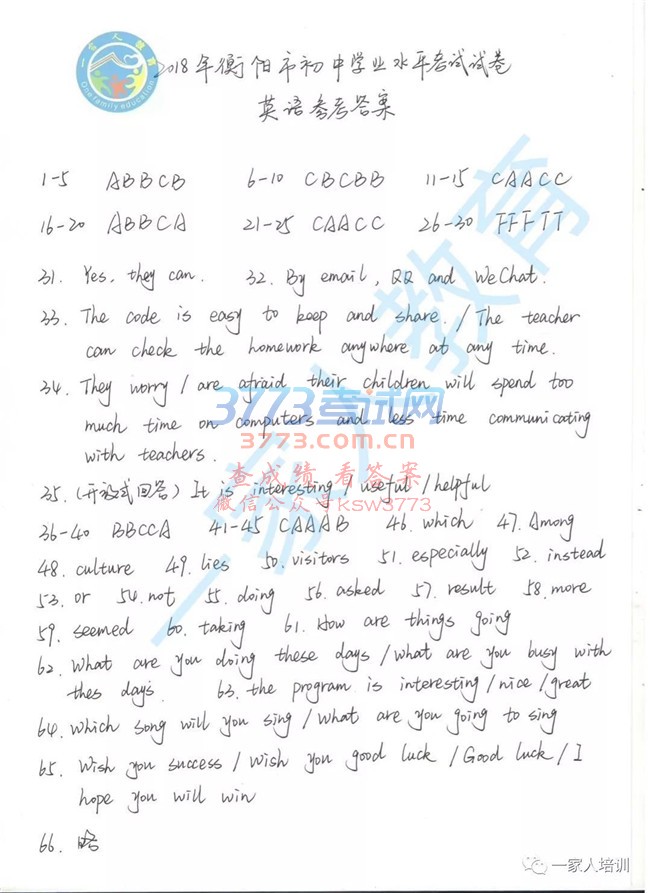 一家人教育
Onefamily education
2018年衡阳市初中学业水平考试试卷
英语参考答案
1-5 ABBCB 6-10 CBCBB 11-15 CAACC
16-20 ABBCA 21-25 CAACC 26-30 FFFTT
31. Yes, they can. 32. By email, QQ and WeChat.
33. The code is easy to keep and share. / The teacher
can check the homework anywhere at any time.
34. They worry / are afraid their children will spend too
much time on computers and less time communicating
with teachers.
3773考试网
3773.com.cn
查成绩 看答案
微信公众号ksw3773
35. (开放式回答) It is interesting / useful / helpful
36-40 BBCCA 41-45 CAAAB 46. which 47. Among
48. culture 49. lies 50. visitors 51. especially 52. instead
53. or 54. not 55. doing 56. asked 57. result 58. more
59. seemed 60. taking 61. How are things going
62. What are you doing these days / what are you busy with
thes days. 63. the program is interesting / nice / great
64. which song will you sing / what are you going to sing
65. Wish you success / Wish you good luck / Good luck / I
hope you will win
66. 略
一家人教育
一家人培训